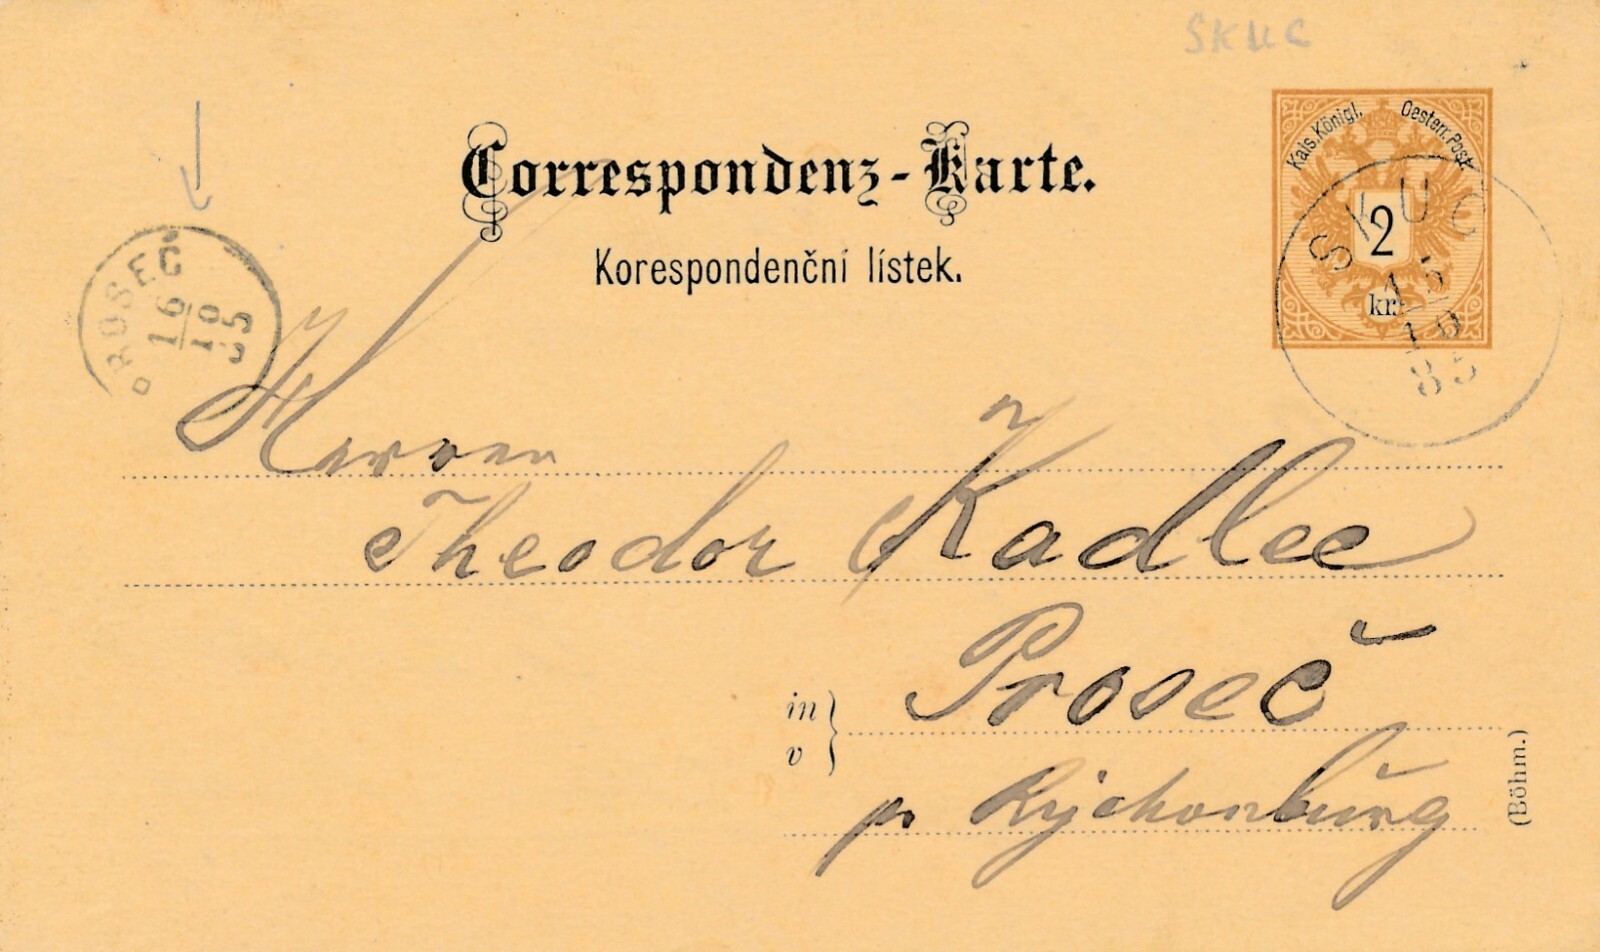 SKUC
Kais. Königl. Oesterr. Post
Correspondenz-Karte.
2
SKUC
Korespondenční lístek.
kr.
15
10
85
PROSEČ
16
10
85
Herren
Theodor Kadlec
in
v
Proseč
p. Rychenburg
(Böhm.)